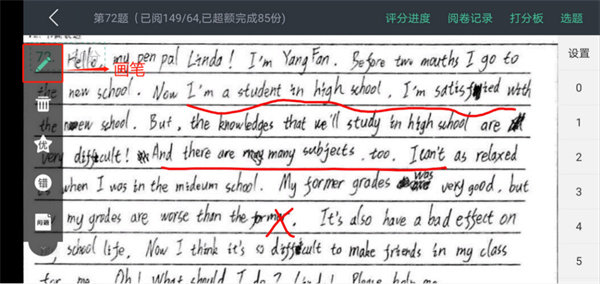 第72题（已阅149/64,已超额完成85份）
评分进度 阅卷记录 打分板 选题
画笔
优
错
设置
0
1
2
3
4
5
Hello, my pen pal Linda! I'm Yang Fan. Before two mouths I go to
the new school. Now I'm a student in high school, I'm satisfied with
the new school. But, the knowledges that we'll study in high school are
very difficult! And there are many subjects, too. I can't as relaxed
when I was in the mideum school. My former grades was very good, but
my grades are worse than the former. It's also have a bad effect on
school life. Now I think it's so difficult to make friends in my class
for me. Oh! What should I do? Please help me